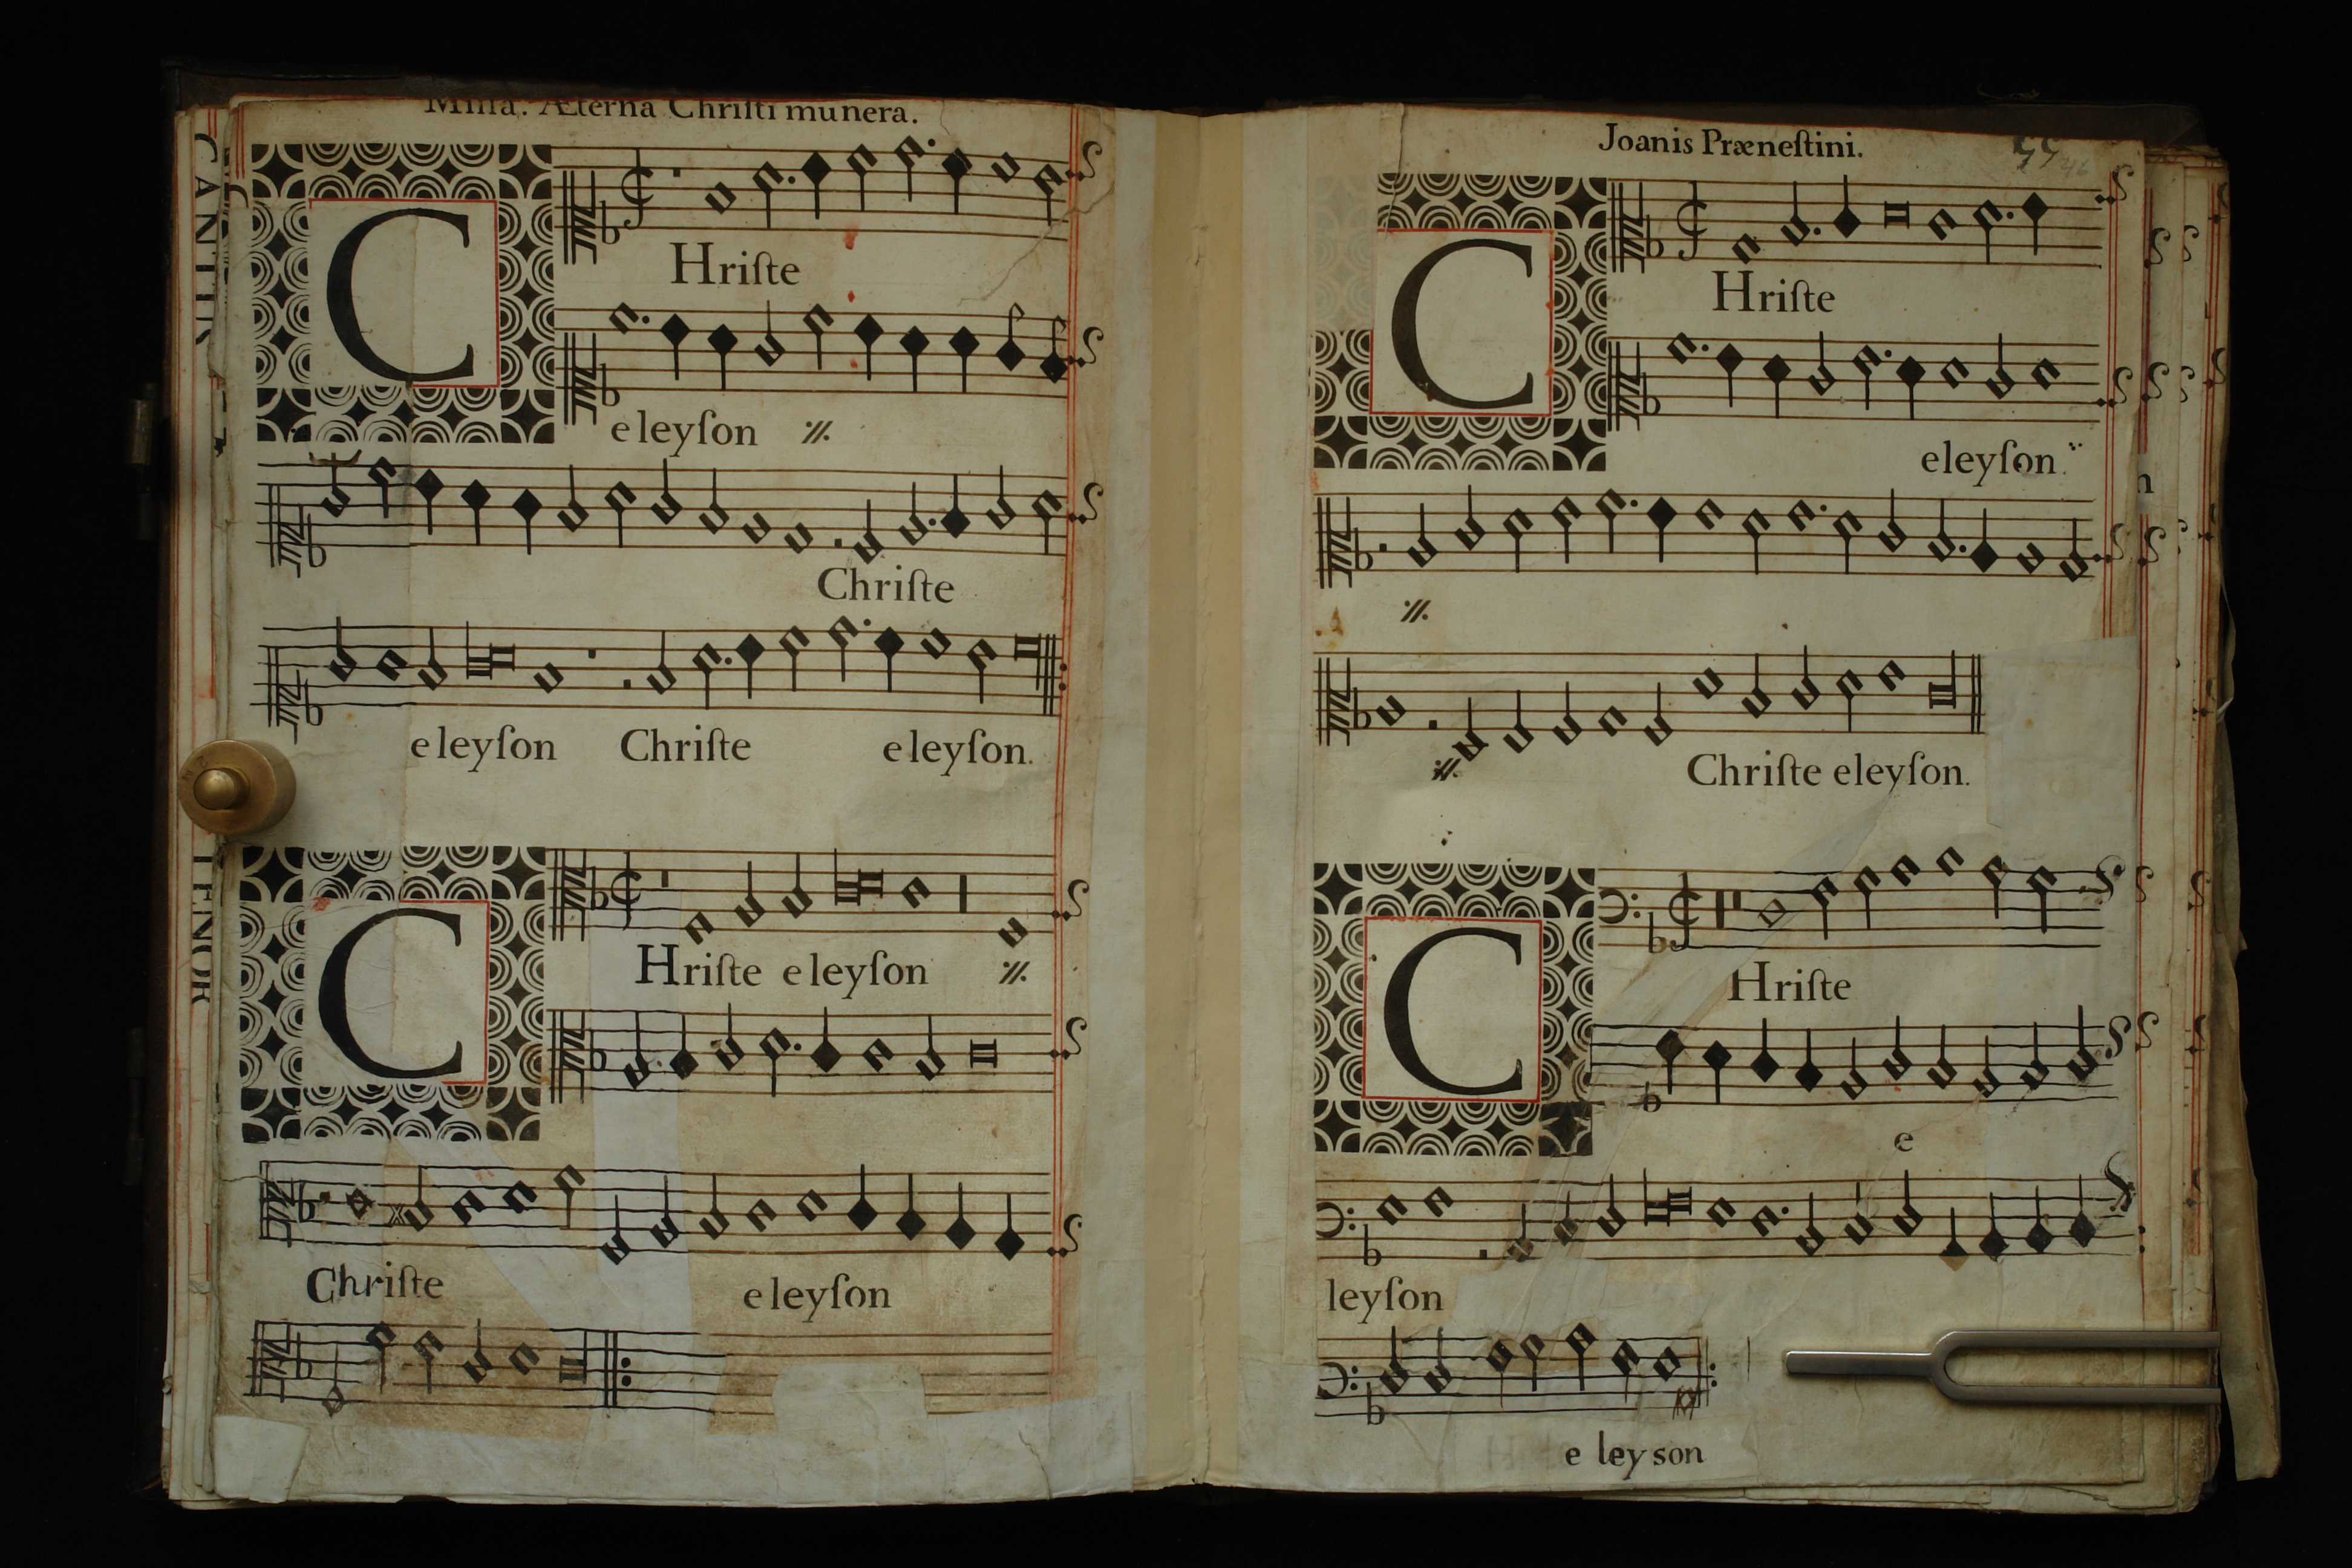 Missa. Æterna Christi munera.
CANTUS
C
Hriſte
eleyſon
Chriſte
eleyſon Chriſte eleyſon.
TENOR
C
Hriſte eleyſon
Chriſte eleyſon
Joanis Præneſtini.
C
Hriſte
eleyſon.
Chriſte eleyſon.
C
Hriſte
e
leyſon
e ley son